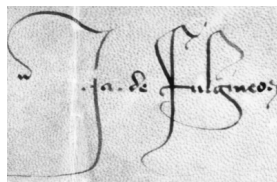 Ja. de Fulgineo